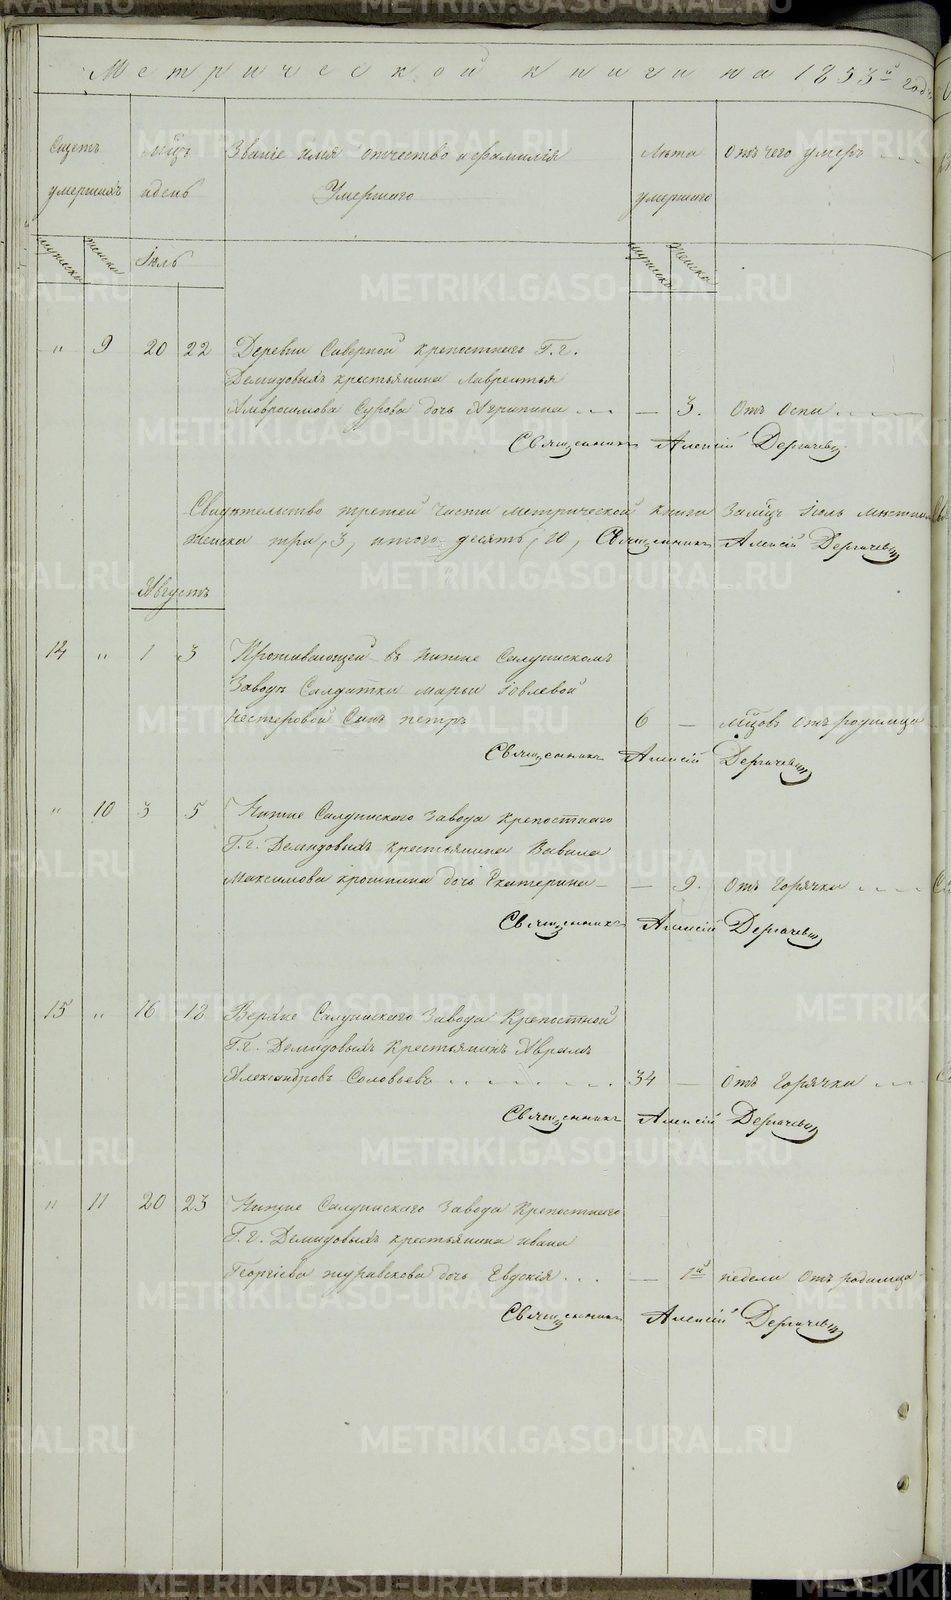 Метрической книги на 1853й годъ
Счетъ умершихъ
мѣцъ и день
Званіе имя отчество и фамилія Умершаго
Лѣта умершаго
Отъ чего умеръ
мужеска
женска
Іюль
мужеска
женска
" 9 20 22 Деревни Северной крепостнаго Г. г.
Демидовыхъ крестьянина Лаврентья
Амвросимова Сурова дочь Агрипина — 3. Отъ Оспы
Священникъ Алексій Дергачевъ
Свидѣтельство третей части метрической книги За мѣцъ Іюль
женска три, 3, итого десять, 10, Священникъ Алексій Дергачевъ
Августъ
14 " 1 3 Проживающей въ Нижне Салдинскомъ
Заводѣ Салдатки Марьи Іовлевой
Нестеровой Сынъ Петръ 6 — мѣцовъ Отъ родимца
Священникъ Алексій Дергачевъ
" 10 3 5 Нижне Салдинскаго Завода Крепостнаго
Г. г. Демидовыхъ крестьянина Вавила
Максимова дочь Екатерина — — 9. Отъ Горячки
Священникъ Алексій Дергачевъ
15 " 16 18 Верхне Салдинскаго Завода Крепостной
Г. г. Демидовыхъ Крестьянинъ Аврамъ
Александровъ Соловьевъ 34 — Отъ Горячки
Священникъ Алексій Дергачевъ
" 11 20 23 Нижне Салдинскаго Завода Крепостнаго
Г. г. Демидовыхъ крестьянина Ивана
Георгіева Журавкова дочь Евдокія — 1й недели Отъ родимца
Священникъ Алексій Дергачевъ
METRIKI.GASO-URAL.RU